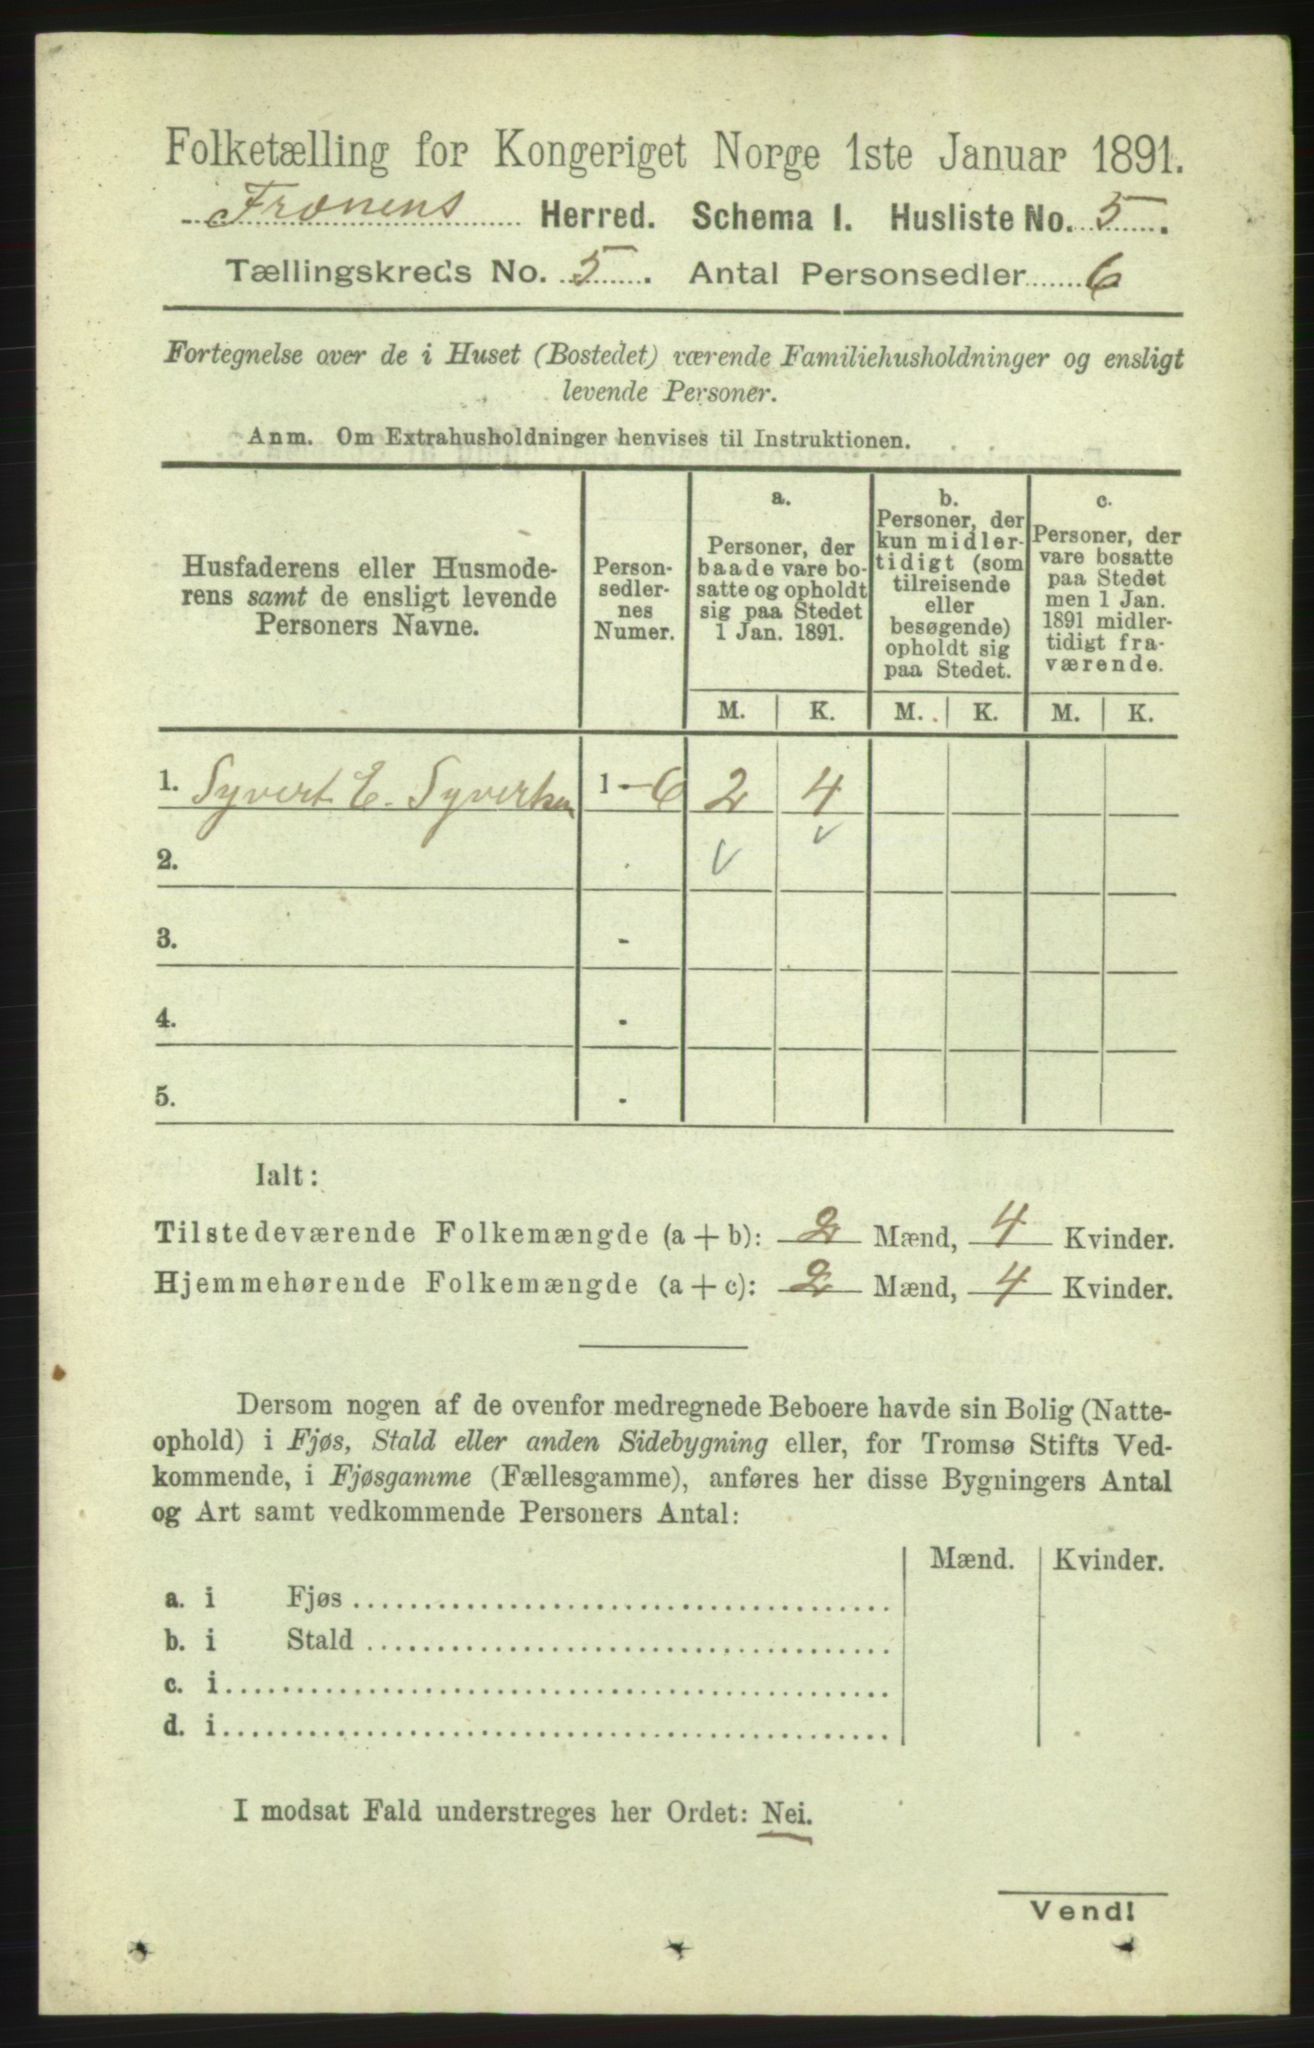 Folketælling for Kongeriget Norge 1ste Januar 1891.
Frænens Herred. Schema I. Husliste No. 5.
Tællingskreds No. 5. Antal Personsedler 6
Fortegnelse over de i Huset (Bostedet) værende Familiehusholdninger og ensligt
levende Personer.
Anm. Om Extrahusholdninger henvises til Instruktionen.
Husfaderens eller Husmode-
rens samt de ensligt levende
Personers Navne.
Person-
sedler-
nes
Numer.
a.
Personer, der
baade vare bo-
satte og opholdt
sig paa Stedet
1 Jan. 1891.
b.
Personer, der
kun midler-
tidigt (som
tilreisende
eller
besøgende)
opholdt sig
paa Stedet.
c.
Personer, der
vare bosatte
paa Stedet
men 1 Jan.
1891 midler-
tidigt fra-
værende.
M. K. M. K. M. K.
1. Syvert E. Syvertsen 1-6 2 4
2.
3. -
4. -
5. -
Ialt:
Tilstedeværende Folkemængde (a + b): 2 Mænd, 4 Kvinder.
Hjemmehørende Folkemængde (a + c): 2 Mænd, 4 Kvinder.
Dersom nogen af de ovenfor medregnede Beboere havde sin Bolig (Natte-
ophold) i Fjøs, Stald eller anden Sidebygning eller, for Tromsø Stifts Ved-
kommende, i Fjøsgamme (Fællesgamme), anføres her disse Bygningers Antal
og Art samt vedkommende Personers Antal:
Mænd. Kvinder.
a. i Fjøs
b. i Stald
c. i
d. i
I modsat Fald understreges her Ordet: Nei.
Vend!